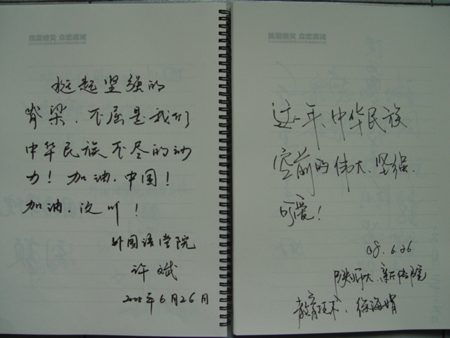 挺起坚强的
脊梁,不屈是我们
中华民族不尽的动
力!加油,中国!
加油,汶川!
外国语学院
许斌
2008年6月26日
这一年,中华民族
空前的伟大、坚强、
可爱!
08.6.26
陕师大、新传院
教育技术、徐海娟